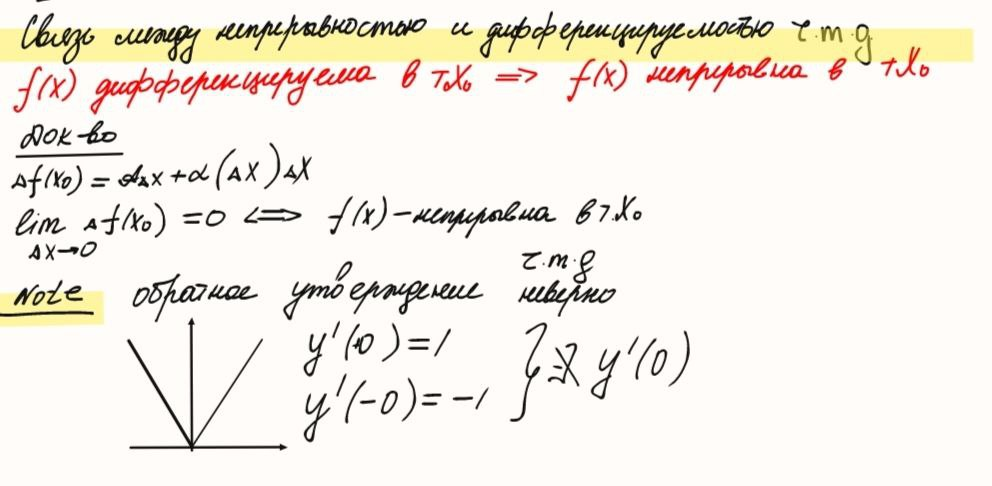 Связь между непрерывностью и дифференцируемостью т.m.g
f(x) дифференцируема в т.X₀ => f(x) непрерывна в т.X₀
Док-во
Δf(x₀) = AΔx + α(Δx)Δx
lim Δf(x₀) = 0 <=> f(x) - непрерывна в т.X₀
Δx→0
т.m.g
Note обратное утверждение неверно
y'(+0) = 1
y'(-0) = -1 } => ∄ y'(0)